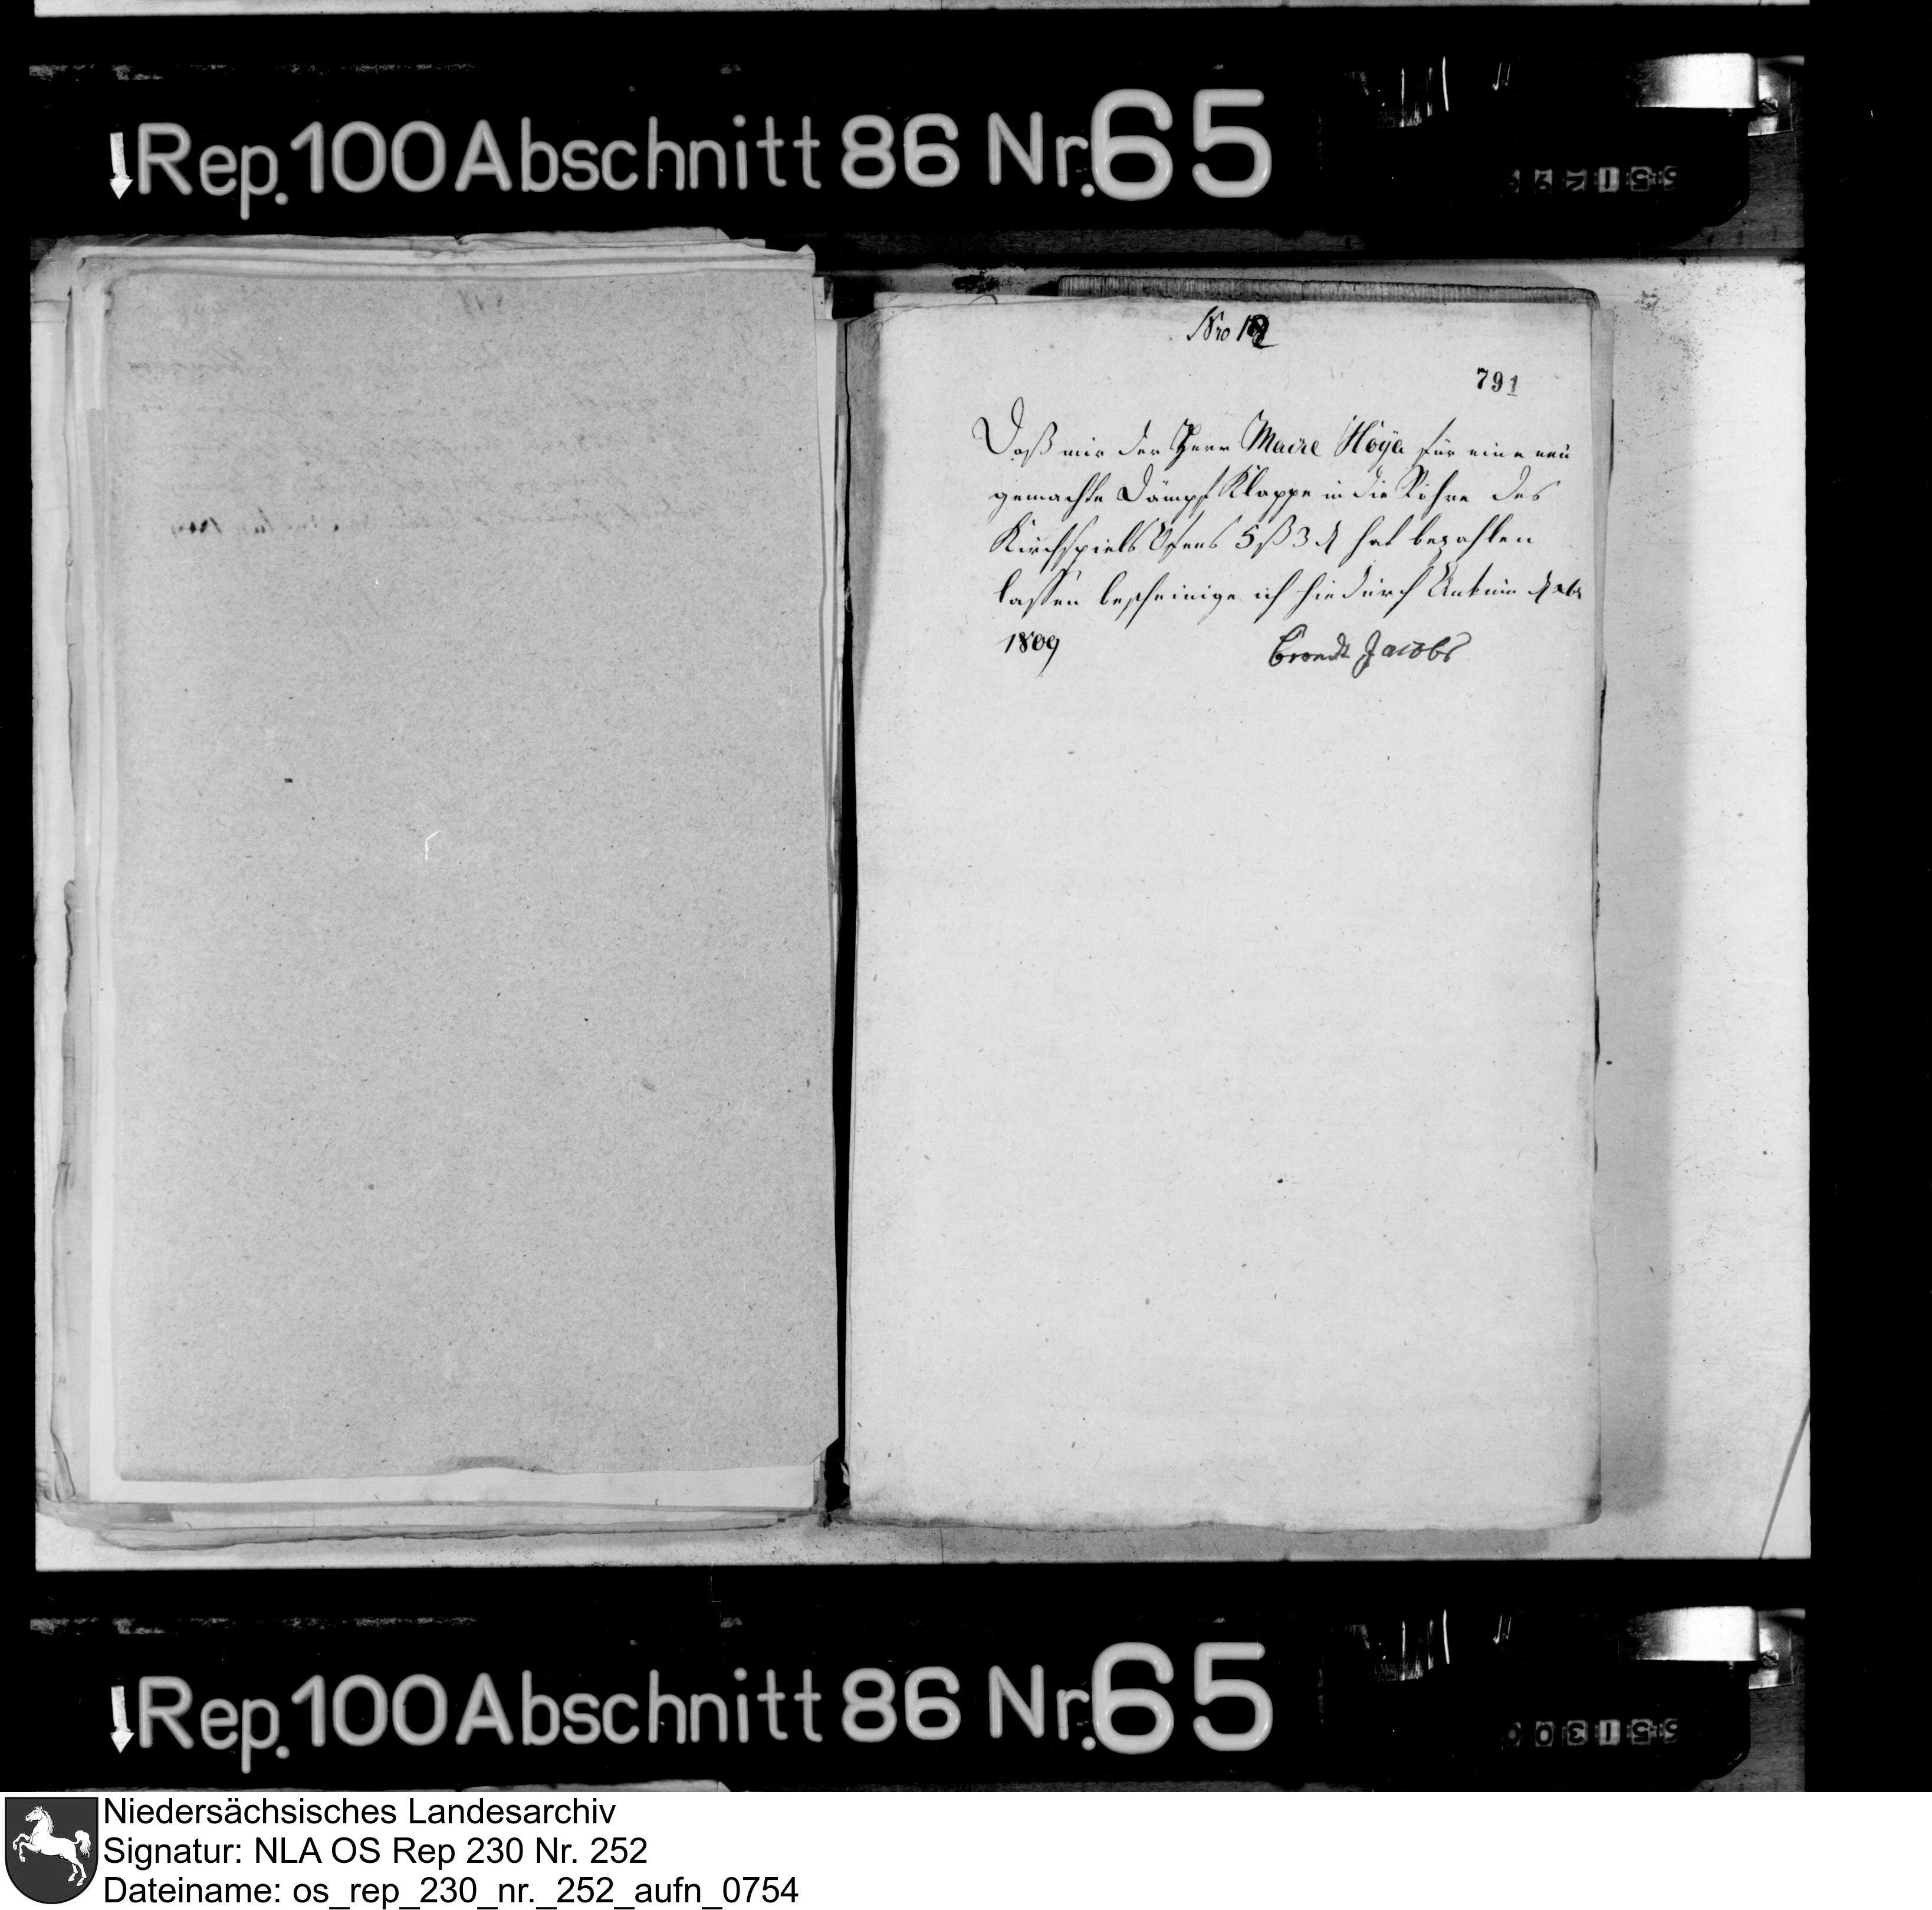 Rep. 100 Abschnitt 86 Nr. 65
Nro 12
791
Daß mir der Herr Maire Höÿe für eine neu
gemachte Dämpf Klappe in die Röhre des
Kirchspiels Ofens 5 ß 3 d hat bezahlen
lassen bescheinige ich hiedurch Ankum d
1809
Jacobs
Rep. 100 Abschnitt 86 Nr. 65
Niedersächsisches Landesarchiv
Signatur: NLA OS Rep 230 Nr. 252
Dateiname: os_rep_230_nr._252_aufn_0754